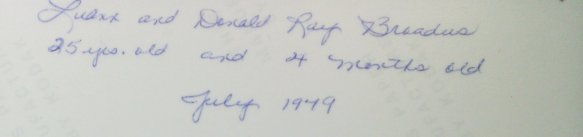 Luann and Donald Ray Broadus
25 yrs. old and 4 months old
July 1949